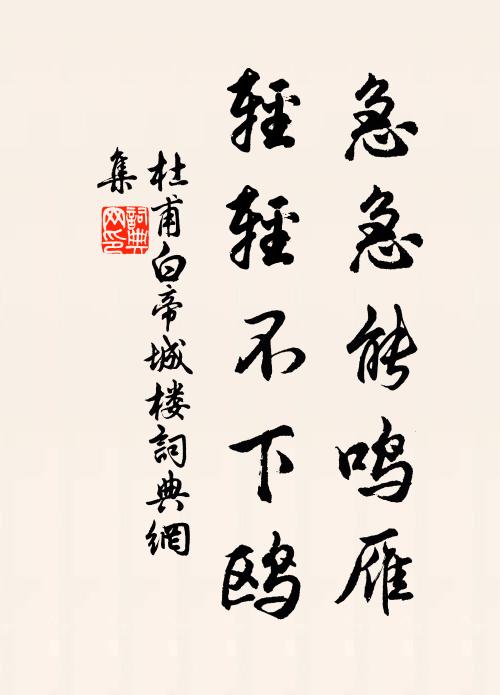 急急能鸣雁
轻轻不下鸥
杜甫白帝城楼詞典網
集
詞典网印